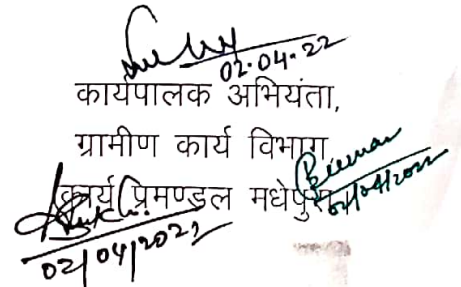 02.04.22
कार्यपालक अभियंता,
ग्रामीण कार्य विभाग
कार्य प्रमण्डल मधेपुरा
02/04/2022
02/04/2022